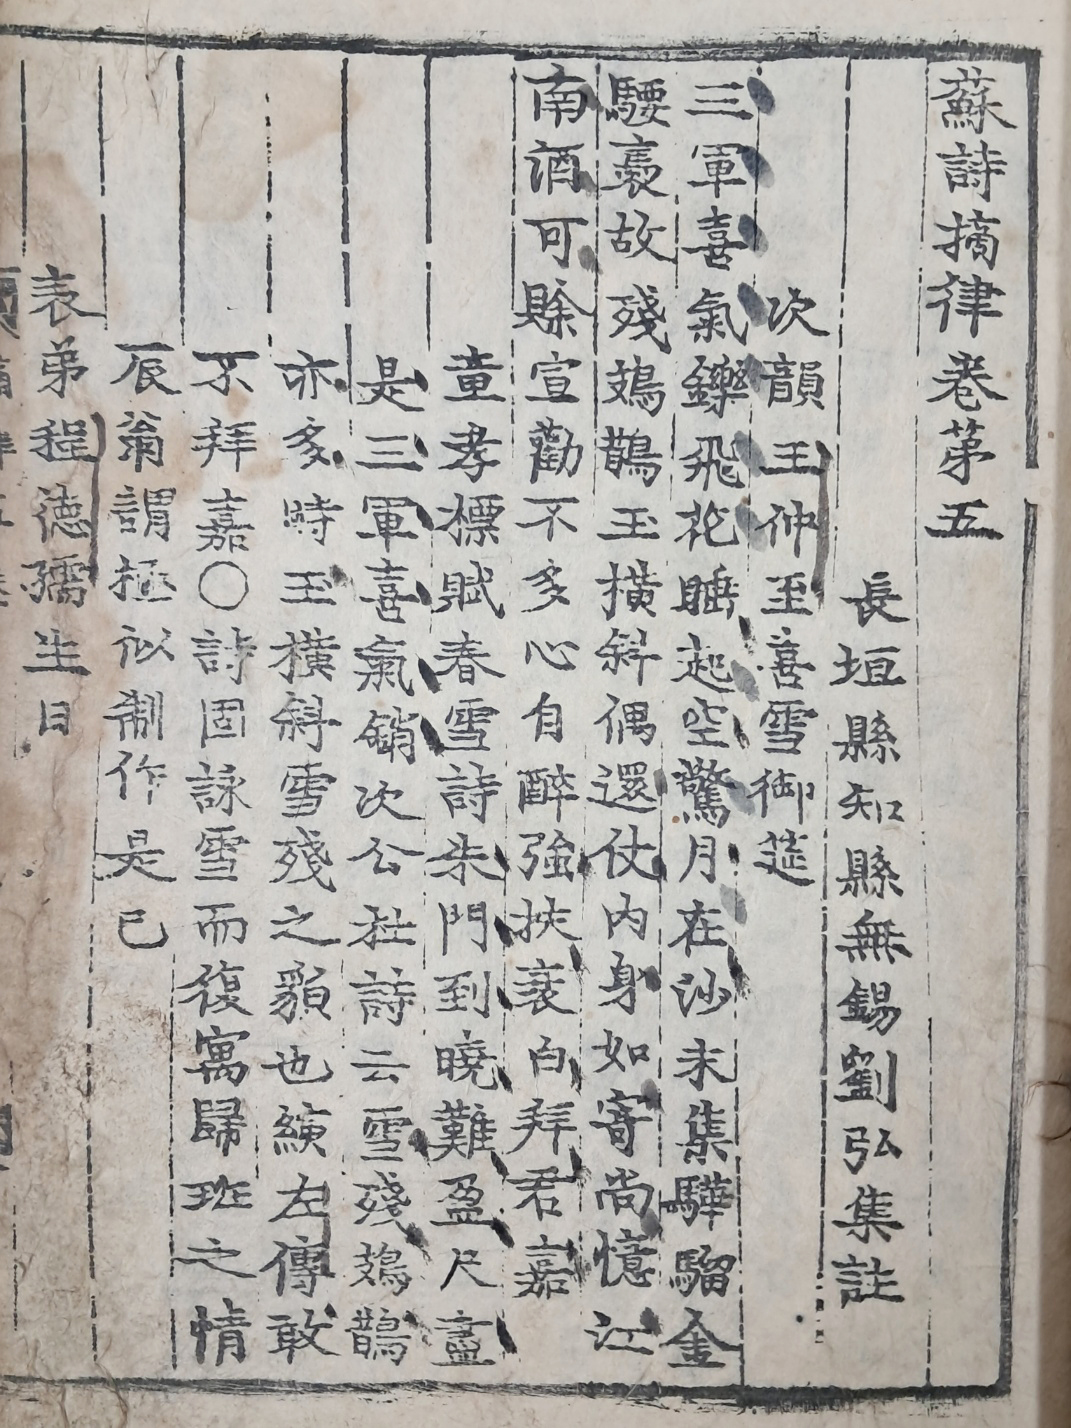 蘇詩摘律卷第五
長垣縣知縣無錫劉弘集註
次韻王仲至喜雪御筵
三軍喜氣鑠飛花睡起空驚月在沙未集驊騮金
騕褭故殘鳷鵲玉橫斜偶還仗內身如寄尚憶江
南酒可賒宣勸不多心自醉強扶衰白拜君嘉
童孝標賦春雪詩朱門到曉難盈尺盡
是三軍喜氣銷次公杜詩云雪殘鳷鵲
亦多時玉橫斜雪殘之貌也績左傳敢
不拜嘉○詩固詠雪而復寓歸班之情
辰翁謂極似制作是已
表弟程德孺生日